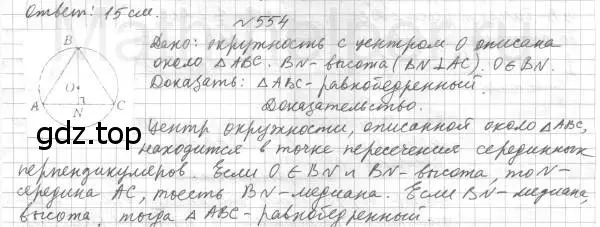 Ответ: 15 см.
№554
Дано: окружность с центром O описана
около △ABC. BN-высота (BN⊥AC). O∈BN.
Доказать: △ABC-равнобедренный.
Доказательство.
Центр окружности, описанной около △ABC,
находится в точке пересечения серединных
перпендикулеров. Если O∈BN и BN-высота, то N-
середина AC, тоесть BN-медиана. Если BN-медиана,
высота, тогда △ABC-равнобедренный.
B
O
A
N
C
gdz.top